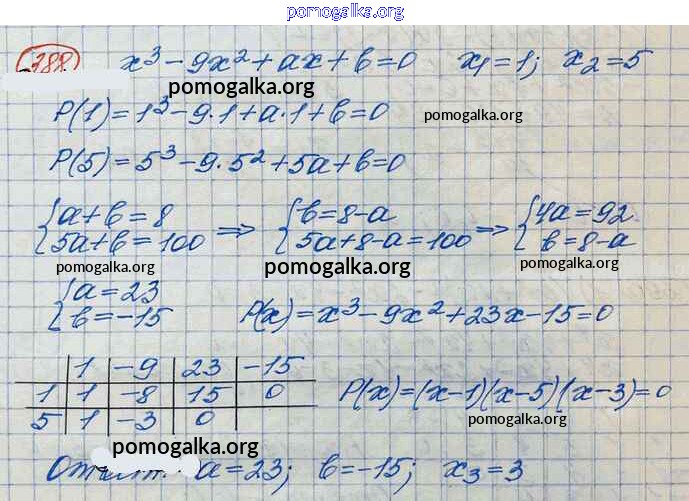 pomogalka.org
788. x³ - 9x² + ax + b = 0 x₁ = 1; x₂ = 5
pomogalka.org
P(1) = 1³ - 9·1 + a·1 + b = 0 pomogalka.org
P(5) = 5³ - 9·5² + 5a + b = 0
{ a + b = 8 ⇒ { b = 8 - a ⇒ { 4a = 92
{ 5a + b = 100 { 5a + 8 - a = 100 { b = 8 - a
pomogalka.org pomogalka.org pomogalka.org
{ a = 23
{ b = -15 P(x) = x³ - 9x² + 23x - 15 = 0
| 1 | -9 | 23 | -15
1 | 1 | -8 | 15 | 0 P(x) = (x-1)(x-5)(x-3) = 0
5 | 1 | -3 | 0 |
pomogalka.org
pomogalka.org
a = 23; b = -15; x₃ = 3